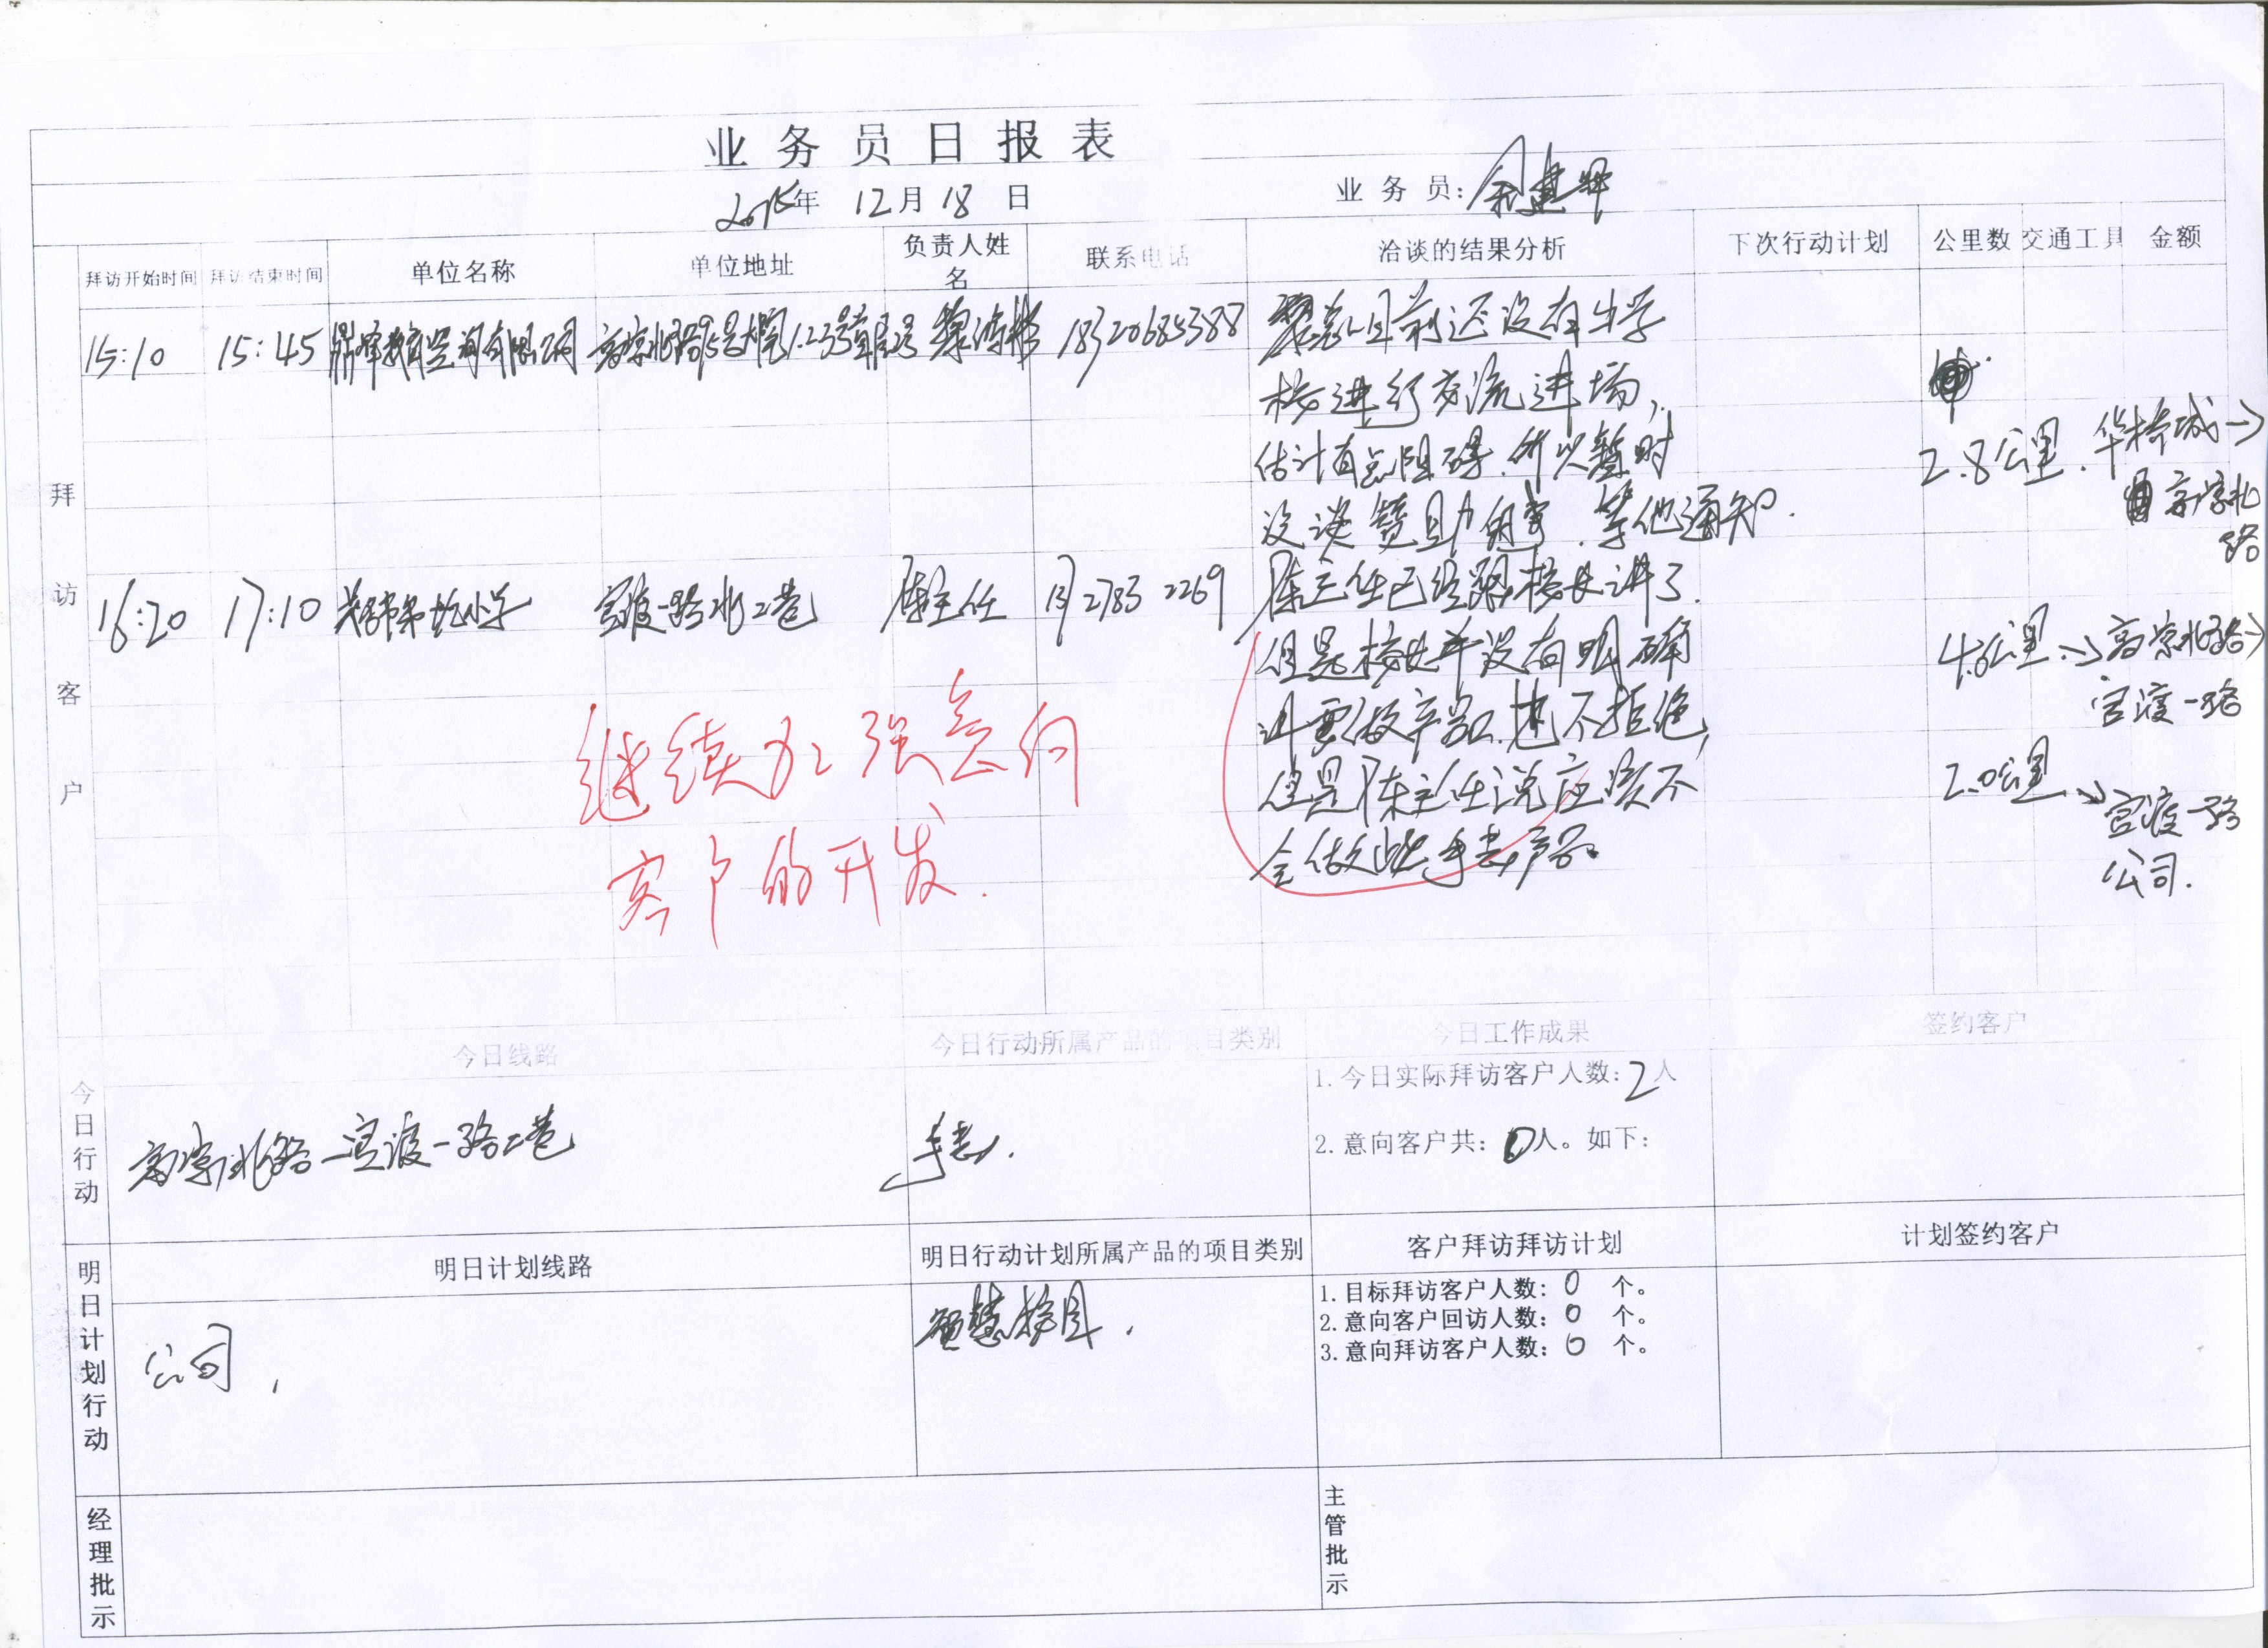 业务员日报表
2015年 12月 18日 业务员:
拜访开始时间 拜访结束时间 单位名称 单位地址 负责人姓名 联系电话 洽谈的结果分析 下次行动计划 公里数 交通工具 金额
拜访客户
15:10 15:45 教育咨询有限公司 18320685388 目前还没有与学
校进行交流进场,
估计有点阻碍.所以暂时
没谈赞助的事.等他通知.
2.8公里. 华桥城→
北
路
16:20 17:10 小学 官渡一路北二巷 陈主任 137 2785 2269 陈主任已经跟校长讲了.
但是校长并没有明确
讲要做产品.也不拒绝,
但是陈主任说应该不
会做此手表产品。
4.6公里→ 北路→
官渡一路
2.0公里→ 官渡一路
公司.
继续加强意向
客户的开发.
今日行动
今日线路 今日行动所属产品的项目类别 今日工作成果 签约客户
北路—官渡一路二巷 手表.
1.今日实际拜访客户人数:2人
2.意向客户共:0人。如下:
明日计划行动
明日计划线路 明日行动计划所属产品的项目类别 客户拜访拜访计划 计划签约客户
公司, 智慧校园.
1.目标拜访客户人数: 0 个。
2.意向客户回访人数: 0 个。
3.意向拜访客户人数: 0 个。
经理批示 主管批示